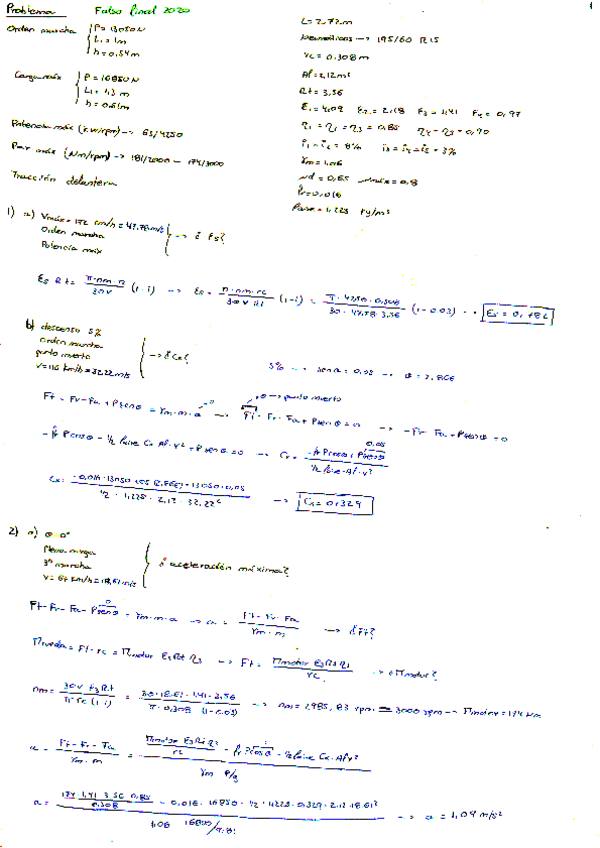 Problema Falso final 2020
Orden marcha P = 13050 N
L₁ = 1m
h = 0,54 m
Carga máx P = 16850 N
L₁ = 1,3 m
h = 0,61 m
Potencia máx (kw/rpm) → 63/4250
Par máx (Nm/rpm) → 181/2000 - 174/3000
Tracción delantera
L = 2,72 m
Neumáticos → 195/60 R15
rc = 0,308 m
Af = 2,12 m²
Rt = 3,56
E₁ = 4,09 E₂ = 2,18 E₃ = 1,41 E₄ = 0,97
η₁ = η₂ = η₃ = 0,85 η₄ = η₅ = 0,90
i₁ = i₂ = 8% i₃ = i₄ = i₅ = 3%
γm = 1,06
μd = 0,65 μmáx = 0,8
fr = 0,016
ρaire = 1,225 kg/m³
1) a) Vmáx = 172 km/h = 47,78 m/s
Orden marcha
Potencia máx
→ ¿ E₅?
E₅ Rt = π·nm·rc / 30 v (1-i) → E₅ = π·nm·rc / 30 v Rt (1-i) = π · 4250 · 0,308 / 30 · 47,78 · 3,56 (1-0,03) → E₅ = 0,786
b) descenso 5%
Orden marcha
punto muerto
V = 116 km/h = 32,22 m/s
→ ¿Cx?
5% → senθ = 0,05 → θ = 2,866
Ft - Fr - Fa + P senθ = γm·m·a → Ft - Fr - Fa + P senθ = 0 → -Fr - Fa + P senθ = 0
0 → punto muerto
-fr P cosθ - 1/2 ρaire Cx Af · v² + P senθ = 0 → Cx = -fr P cosθ + P senθ / 1/2 ρaire · Af · v²
0,05
Cx = -0,016 · 13050 cos (2,866) + 13050 · 0,05 / 1/2 · 1,225 · 2,12 · 32,22² → Cx = 0,329
2) a) θ = 0°
Plena carga
3ª marcha
V = 67 km/h = 18,61 m/s
¿ aceleración máxima?
Ft - Fr - Fa - P senθ = γm·m·a → a = Ft - Fr - Fa / γm · m → ¿Ft?
Mrueda = Ft · rc = Mmotor E₃ Rt η₃ → Ft = Mmotor E₃ Rt η₃ / rc → ¿Mmotor?
nm = 30 v E₃ Rt / π rc (1-i) = 30 · 18,61 · 1,41 · 3,56 / π · 0,308 (1-0,03) → nm = 2985,83 rpm ≃ 3000 rpm → Mmotor = 174 Nm
a = Ft - Fr - Fa / γm · m = Mmotor E₃ Rt η₃ / rc - fr P cosθ - 1/2 ρaire Cx Af v² / γm P/g
a = 174 · 1,41 · 3,56 · 0,85 / 0,308 - 0,016 · 16850 - 1/2 · 1,225 · 0,329 · 2,12 · 18,61² / 1,06 · 16850/9,81 → a = 1,04 m/s²